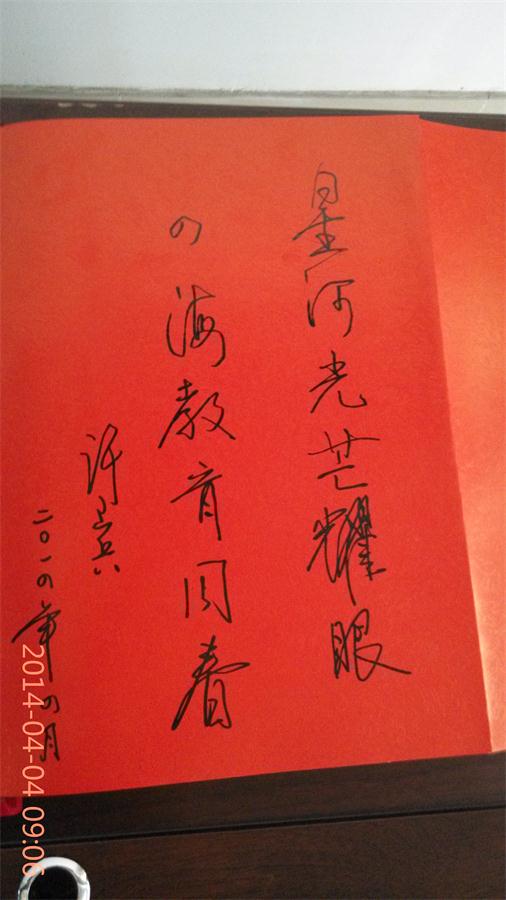 星河光芒耀眼
四海教育同春
许
二〇一四年四月
2014-04-04 09:06